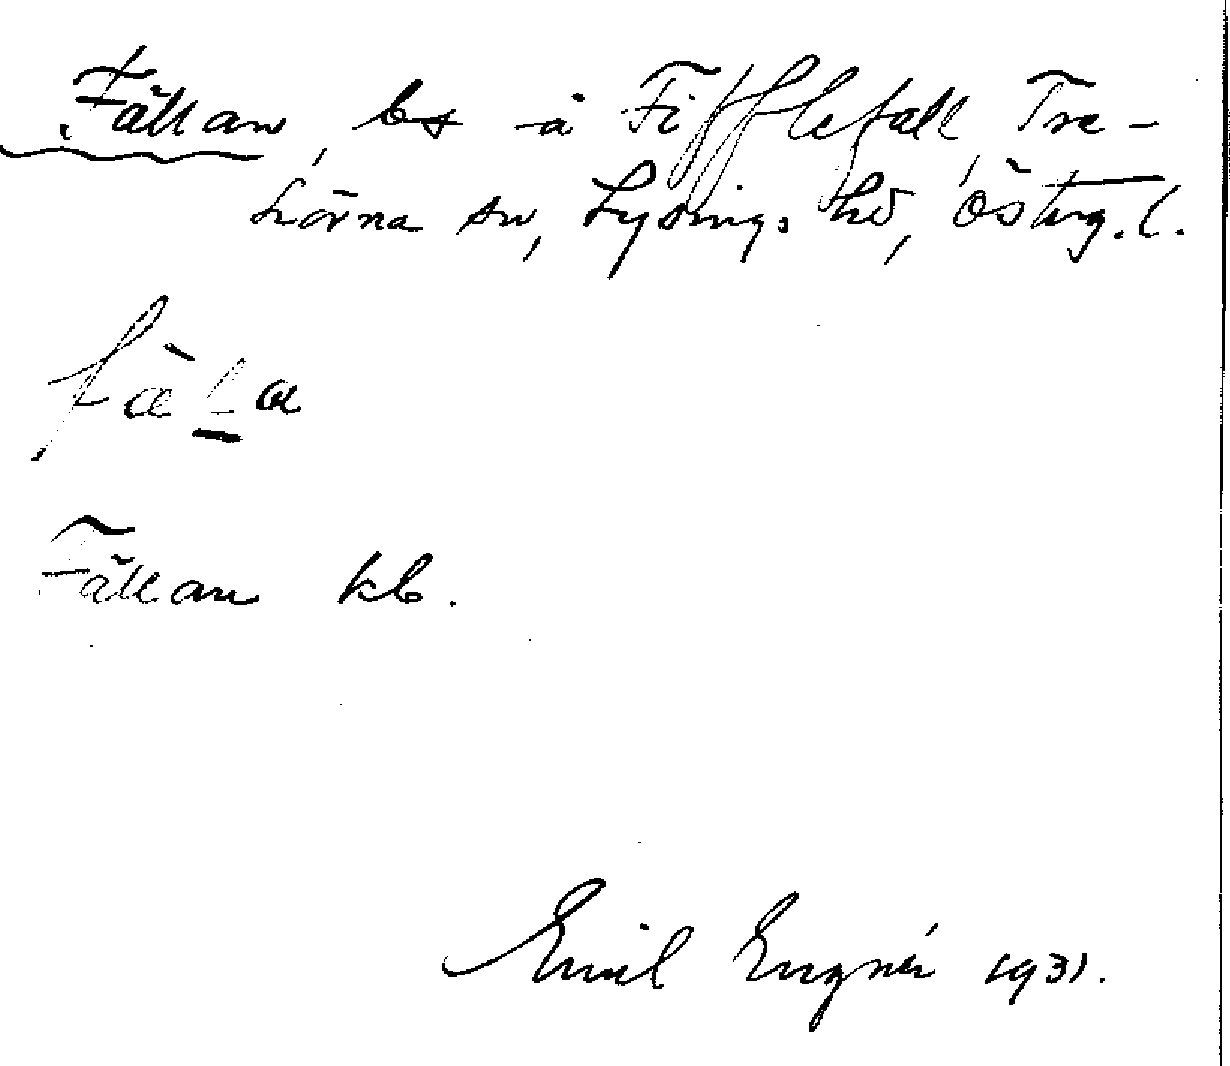 Fällan, bs å Fifflefall, Tre-
hörna sn, Lysings hd, Österg. l.
fä̀l̠a
Fällan kb.
Emil Engnér 1931.